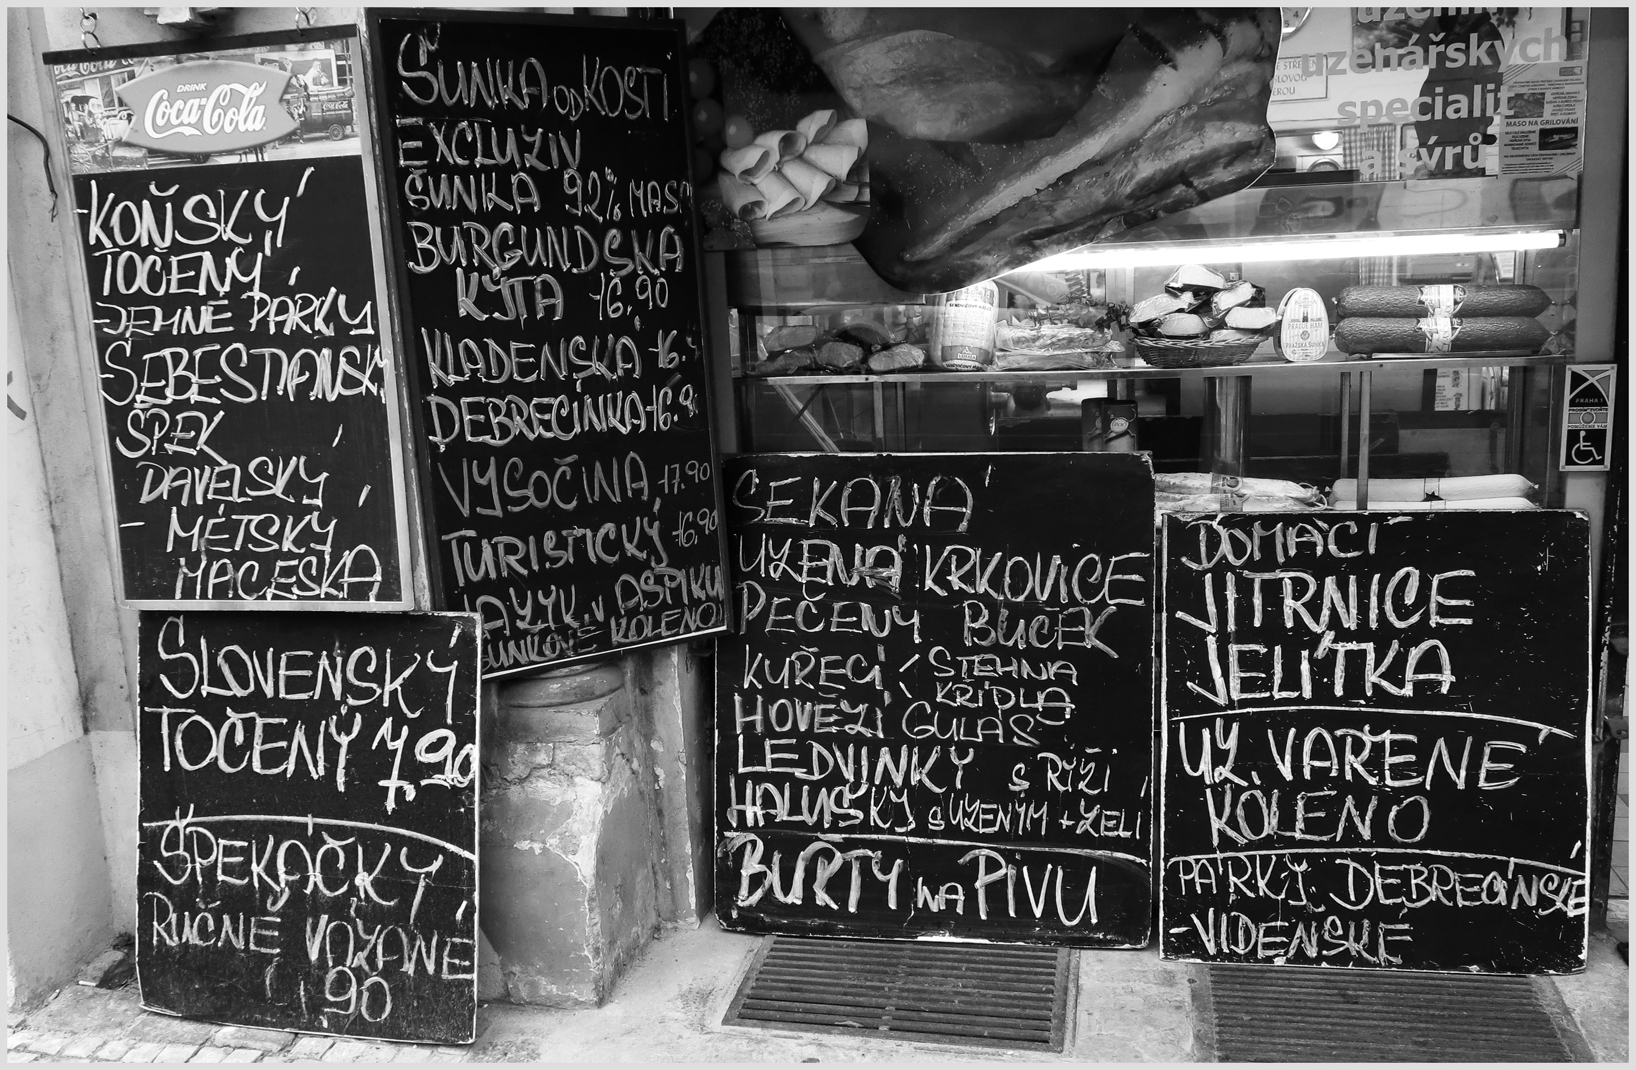 DRINK
Coca-Cola
-KOŇSKÝ
TOČENÝ
-JEHNĚ PÁRKY
-ŠEBESTIÁNSK
ŠPEK
DAVELSKÝ
- MÉTSKÝ
MACESKA
ŠUNKA OD KOSTI
EXCLUZIV
ŠUNKA 92% MASA
BURGUNDSKÁ
KÝTA 16.90
KLADENSKÁ 16.
DEBRECÍNKA 16.9
VYSOČINA 17.90
TURISTICKÝ 16,90
JAZYK V ASPIKU
ŠUNKOVÉ KOLENO
SLOVENSKÝ
TOČENÝ 7,90
ŠPEKÁČKY
RUČNĚ VÁZANÉ
90
uzenářských
specialit
a sýrů
MASO NA GRILOVÁNÍ
PRAGUE HAM
PRAŽSKÁ ŠUNKA
PRAHA 1
SEKANÁ
UZENÁ KRKOVICE
PEČENÝ BUČEK
KUŘECÍ STEHNA
KŘÍDLA
HOVĚZÍ GULÁŠ
LEDVINKY S RÝŽÍ
HALUŠKY S UZENÝM + ZELÍ
BUŘTY NA PIVU
DOMÁCÍ
JITRNICE
JELÍTKA
UZ. VAŘENÉ
KOLENO
PÁRKY. DEBRECÍNSKÉ
-VÍDEŇSKÉ